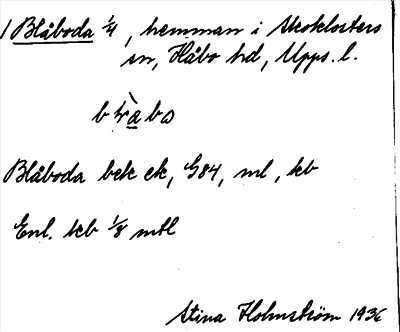 1 Blåboda 1/4, hemman i Skoklosters
sn, Håbo hd, Upps. l.
bo
Blåboda bek ek, G84, ml, kb
Enl. kb 1/8 mtl
Stina Holmström 1936